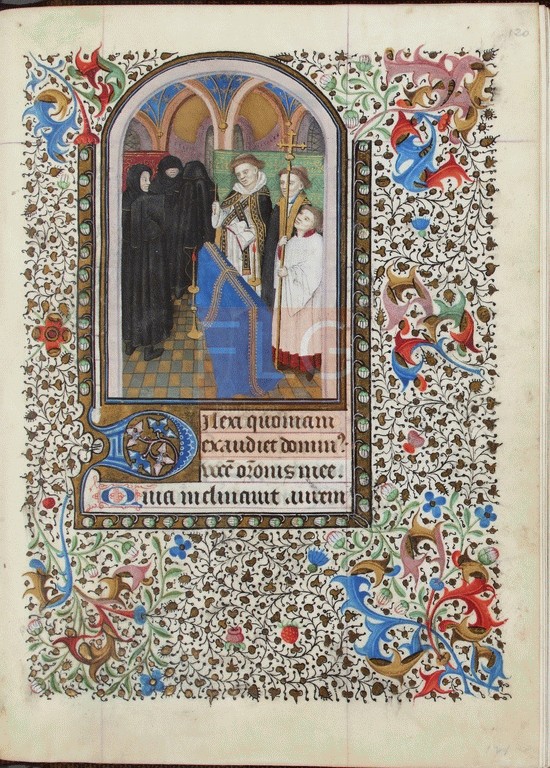 120
Dilexi quoniam
exaudiet domin⁹
vocē orōnis mee.
Quia inclinauit aurem